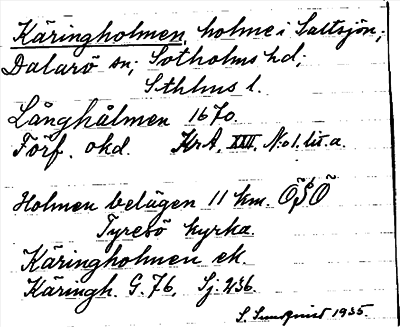 Käringholmen, holme i Saltsjön;
Dalarö sn; Sotholms hd;
Sthlms l.
Långhålmen 1670.
Förf. okd. KrA, XVII, No 1. lit. a.
Holmen belägen 11 km. ÖSÖ
Tyresö kyrka.
Käringholmen ek.
Käringh. G. 76, Sj. 236.
S. Sundqvist 1935.